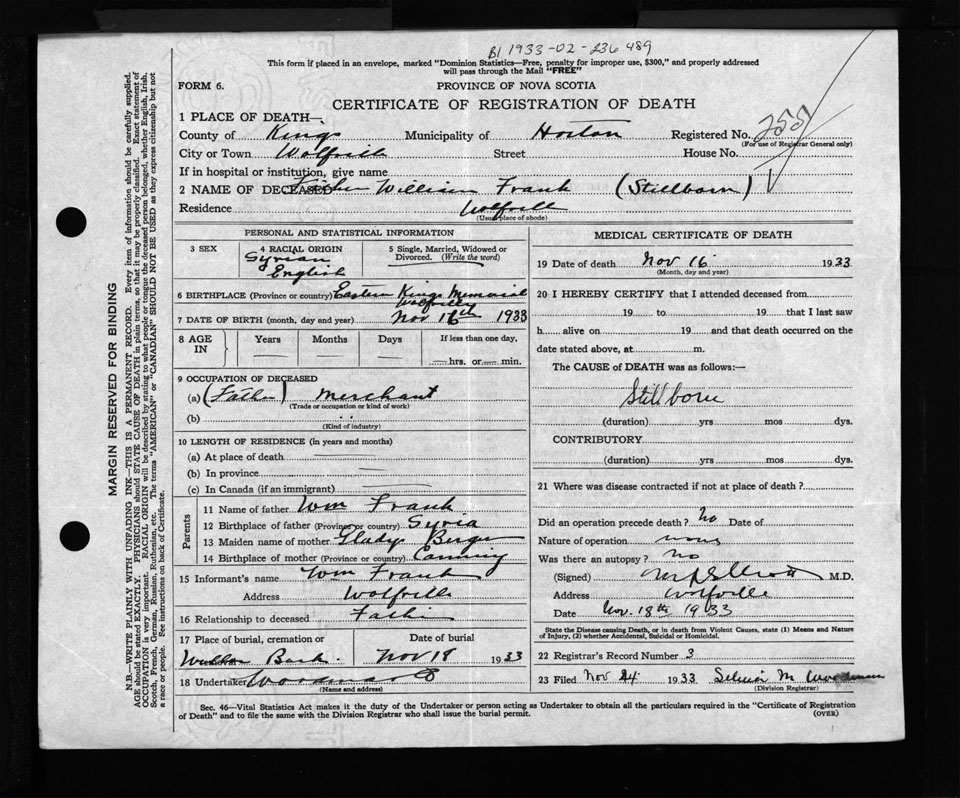 B1 1933-02-236489
This form if placed in an envelope, marked "Dominion Statistics—Free, penalty for improper use, $300," and properly addressed
will pass through the Mail "FREE"
FORM 6.
PROVINCE OF NOVA SCOTIA
CERTIFICATE OF REGISTRATION OF DEATH
1 PLACE OF DEATH—
County of Kings Municipality of Horton Registered No.
(For use of Registrar General only)
City or Town Wolfville Street House No.
If in hospital or institution, give name
2 NAME OF DECEASED William Frank (Stillborn)
Residence Wolfville
(Usual place of abode)
PERSONAL AND STATISTICAL INFORMATION
3 SEX
4 RACIAL ORIGIN
Syrian
English
5 Single, Married, Widowed or
Divorced. (Write the word)
6 BIRTHPLACE (Province or country) Eastern Kings Memorial
Wolfville
7 DATE OF BIRTH (month, day and year) Nov 16th 1933
8 AGE IN Years Months Days If less than one day,
hrs. or min.
9 OCCUPATION OF DECEASED
(a) (Father) Merchant
(Trade or occupation or kind of work)
(b)
(Kind of industry)
10 LENGTH OF RESIDENCE (in years and months)
(a) At place of death
(b) In province
(c) In Canada (if an immigrant)
Parents
11 Name of father Wm Frank
12 Birthplace of father (Province or country) Syria
13 Maiden name of mother Gladys
14 Birthplace of mother (Province or country) Canning
15 Informant's name Wm Frank
Address Wolfville
16 Relationship to deceased Father
17 Place of burial, cremation or
Date of burial
Nov 19 1933
18 Undertaker
(Name and address)
MEDICAL CERTIFICATE OF DEATH
19 Date of death Nov 16 1933
(Month, day and year)
20 I HEREBY CERTIFY that I attended deceased from
19 to 19 that I last saw
h alive on 19 and that death occurred on the
date stated above, at m.
The CAUSE of DEATH was as follows:—
Stillborn
(duration) yrs mos dys.
CONTRIBUTORY
(duration) yrs mos dys.
21 Where was disease contracted if not at place of death?
Did an operation precede death? No Date of
Nature of operation none
Was there an autopsy? No
(Signed) M.D.
Address Wolfville
Date Nov. 18th 1933
State the Disease causing Death, or in death from Violent Causes, state (1) Means and Nature
of Injury, (2) whether Accidental, Suicidal or Homicidal.
22 Registrar's Record Number 3
23 Filed Nov 24 1933
(Division Registrar)
Sec. 46—Vital Statistics Act makes it the duty of the Undertaker or person acting as Undertaker to obtain all the particulars required in the "Certificate of Registration
of Death" and to file the same with the Division Registrar who shall issue the burial permit.
(OVER)
MARGIN RESERVED FOR BINDING
N.B.—WRITE PLAINLY WITH UNFADING INK—THIS IS A PERMANENT RECORD. Every item of information should be carefully supplied.
AGE should be stated EXACTLY. PHYSICIANS should STATE CAUSE OF DEATH in plain terms, so that it may be properly classified. Exact statement of
OCCUPATION is very important. RACIAL ORIGIN will be described by stating to what people or tongue the deceased person belonged, whether English, Irish,
Scotch, French, German, Russian, Ruthenian, etc. The terms "AMERICAN" or "CANADIAN" SHOULD NOT BE USED as they express citizenship but not
a race or people. See instructions on back of Certificate.